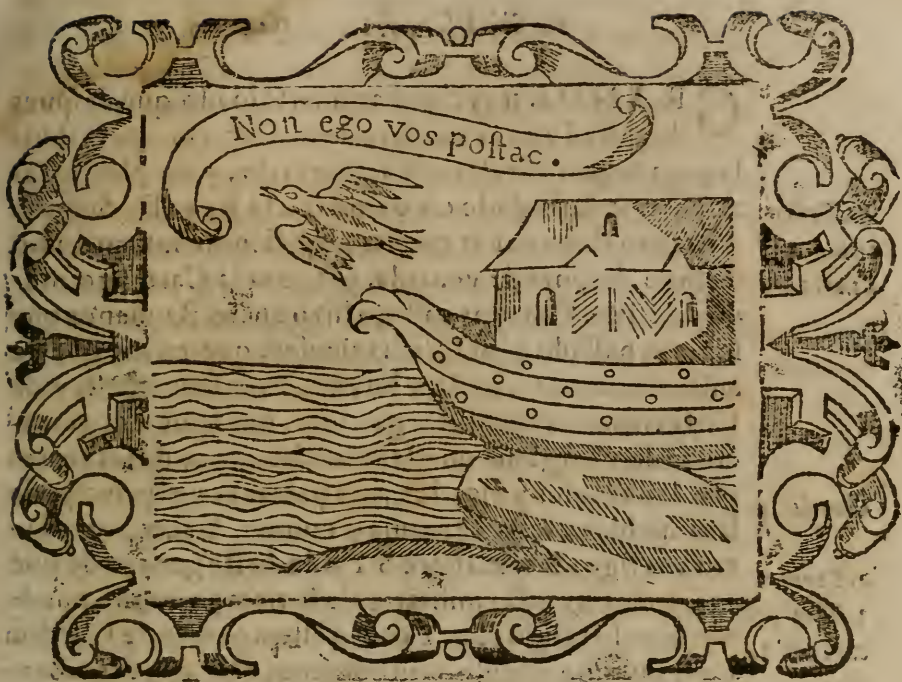 Non ego vos poſtac.